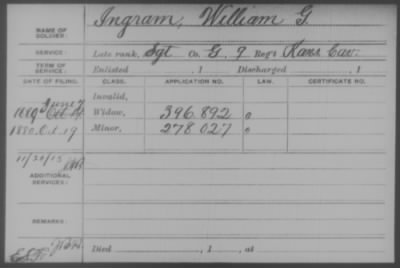 NAME OF SOLDIER: Ingram, William G.
SERVICE: Late rank, Sgt Co. G, 9 Reg't Kans Cav.
TERM OF SERVICE: Enlisted , 1 Discharged , 1
DATE OF FILING. CLASS. APPLICATION NO. LAW. CERTIFICATE NO.
Invalid,
1889 June 7 Widow, 396.892
1880. Oct. 19 Minor, 278 027
11/20/15
ADDITIONAL SERVICES:
REMARKS:
Died , 1 , at